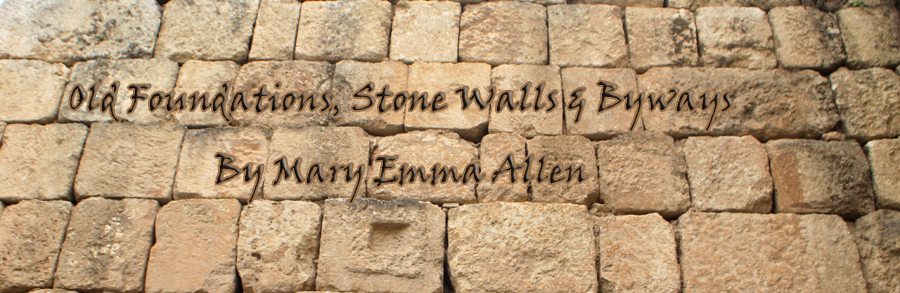 Old Foundations, Stone Walls & Byways
By Mary Emma Allen